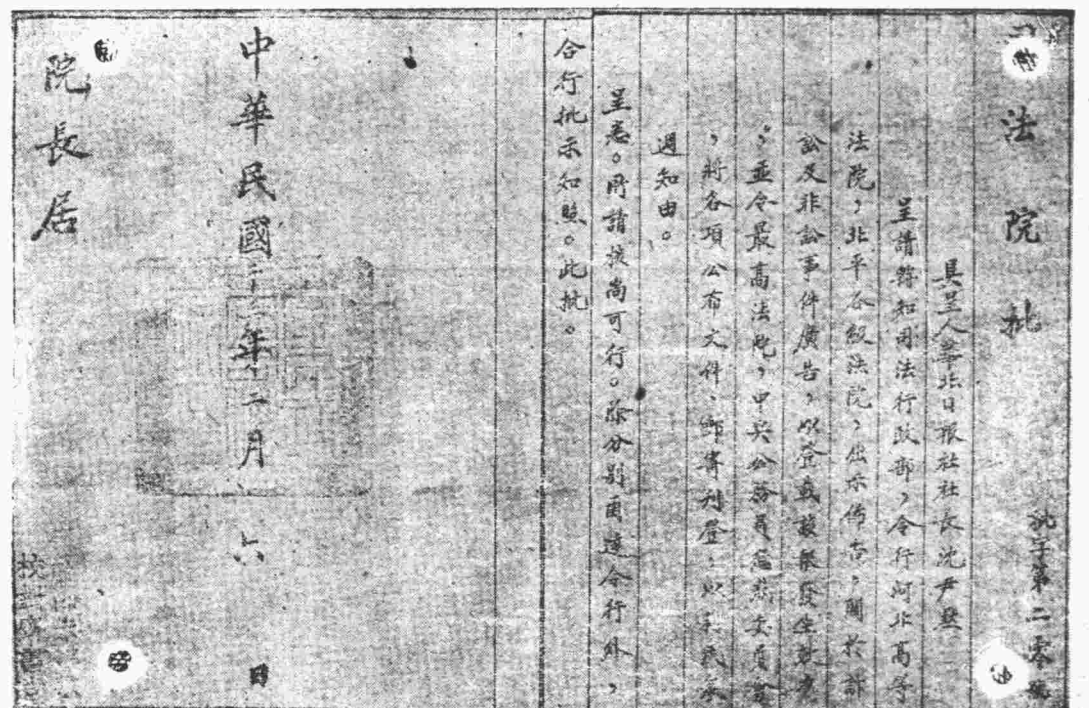 司法院批
批字第二零號
具呈人華北日報社社長沈尹默
呈請轉知司法行政部，令行河北高等
法院，北平各級法院，出示佈告，關於訴
訟及非訟事件廣告，以登載該報發生效力
，並令最高法院，中央公務員懲戒委員會
，將各項公布文件，郵寄刊登，以利民衆
週知由。
呈悉。所請核尚可行。除分別函達令行外，
合行批示知照。此批。
中華民國二十二年十二月 六 日
院長居